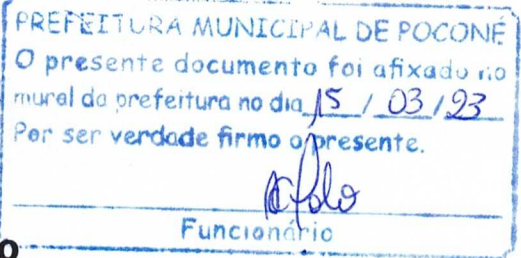 PREFEITURA MUNICIPAL DE POCONÉ
O presente documento foi afixado no
mural da prefeitura no dia 15 / 03 / 23
Por ser verdade firmo o presente.
Funcionário
o